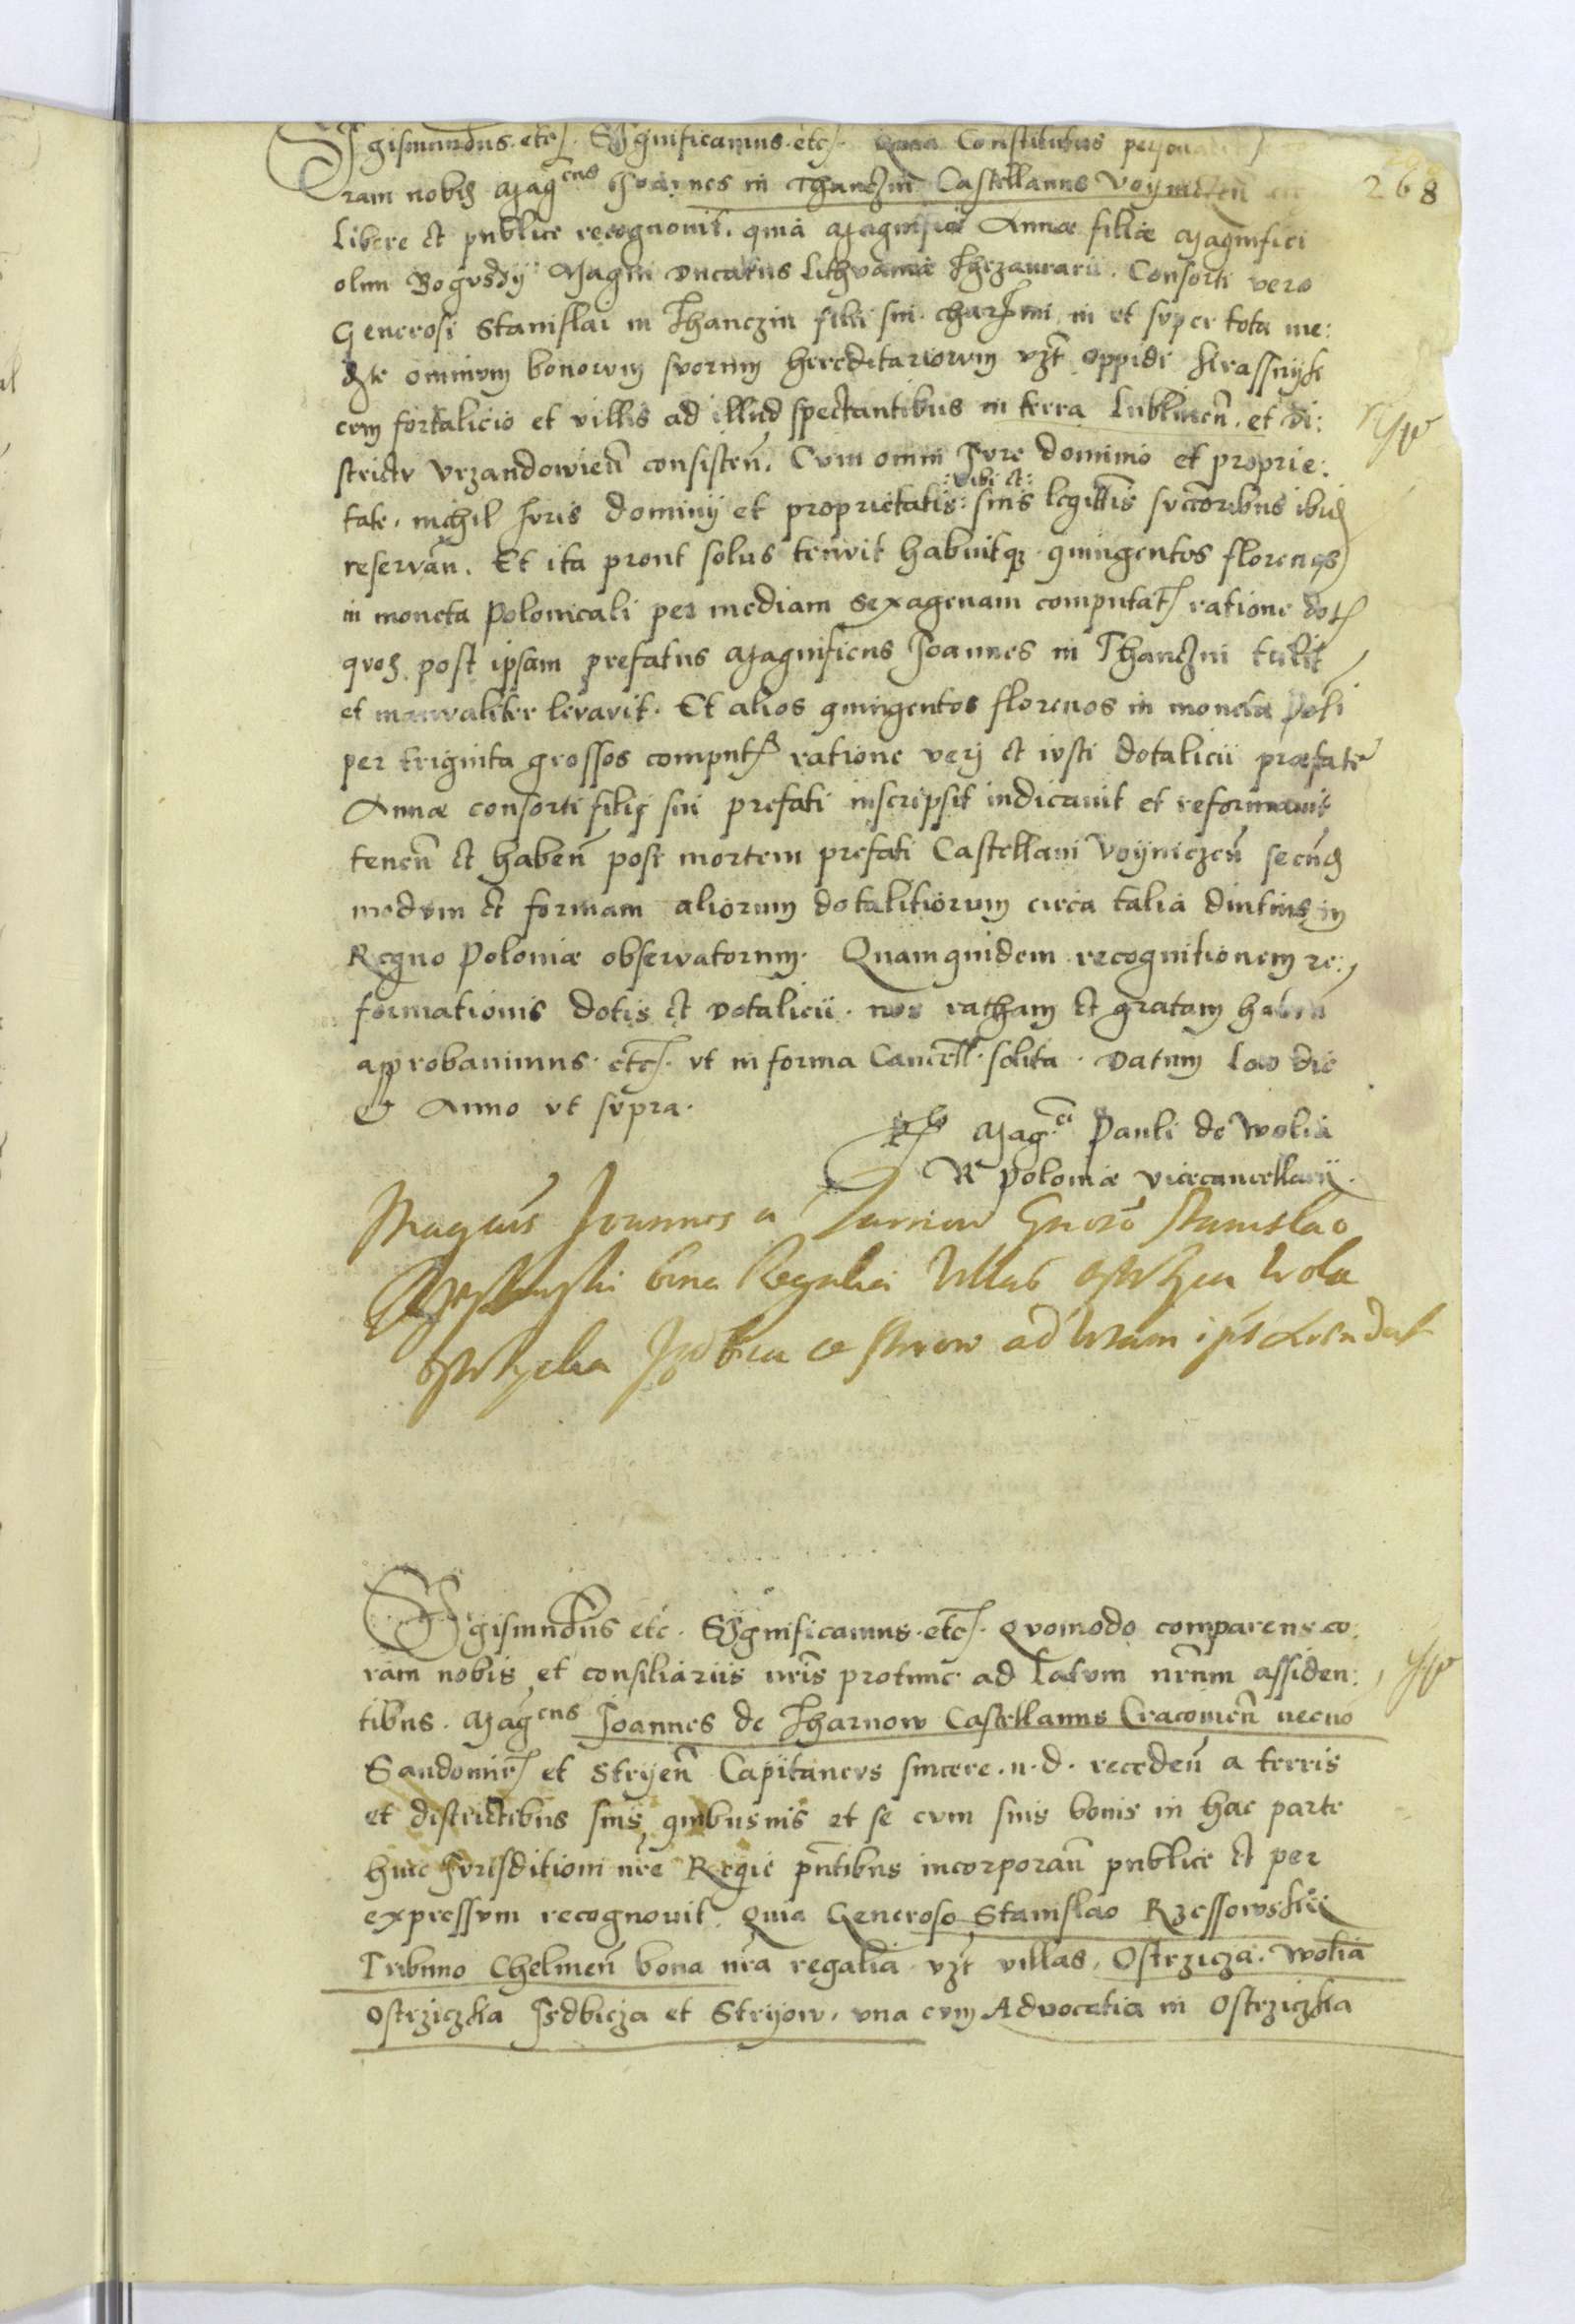 Sigismundus. etc. Significamus. etc. Quia Constitutus personaliter
268
ram nobis Magcus Joannes in Thanczin Castellanus Voyniczen
Libere et publice recognovit. quia Magnificæ Annæ filiæ Magnifici
olim Bogusdy Magni Ducatus Lithvaniæ Thezaurarii. Consorti vero
Generosi Stanislai in Thanczin filii sui charissimi in et super tota me:
dte omnivm bonorvm svorum hereditariorvm vzt oppidi Krassnijk
cvm fortalicio et villis ad illud spectantibus in terra Lublinen. et di:
strictv Vrzandowien consisten. Cvm omni Jvre dominio et proprie:
:sibi et:
tate. nichil Jvris dominij et proprietatis: suis legittis succoribus ibid
reservan. Et ita prout solus tenvit habuitq. quingentos florenos
in moneta Polonicali per mediam sexagenam computat ratione dot
quos post ipsam prefatus Magnificus Joannes in Thanczin tulit
et manvaliter levavit. Et alios quingentos florenos in moneta Poli
per triginta grossos computt ratione verj et ivsti dotalicii præfate
Annæ consorti filij sui prefati inscripsit indicavit et reformavit
tenen et haben post mortem prefati Castellani Voyniczen secund
modvm et formam aliorum dotalitiorvm circa talia diutius in
Regno Poloniæ observatorum. Quamquidem recognitionem re:
formationis dotis et dotalicii. nos ratham et gratam haben
approbavimus. etc. vt in forma Cancell. solita. Datum loco die
et Anno vt svpra.
Magci Pauli de Wolia
R Poloniæ Vicecancellarij.
Magcus Joannes a Tarnow Gnoso Stanislao
bona Regalia Villas Wola
ad
Sigismundus etc. Significamus. etc. Qvomodo comparens co:
ram nobis et consiliariis nris protunc ad Latvm nrum assiden:
tibus. Magcus Joannes de Tharnow Castellanus Cracovien necno
Sandomir et Stryen Capitanevs sincere. n. d. receden a terris
et districtibus suis quibusvis et se cvm suis bonis in hac parte
huic Jvrisditioni nre Regie pntibus incorporan publice et per
expressvm recognovit. Quia Generoso Stanislao Rzessowskij
Tribuno Chelmen bona nra regalia vzt villas. Ostrzicza. Wolia
Ostrziczka Jsdbicza et Stryow. vna cvm Advocatia in Ostrziczka